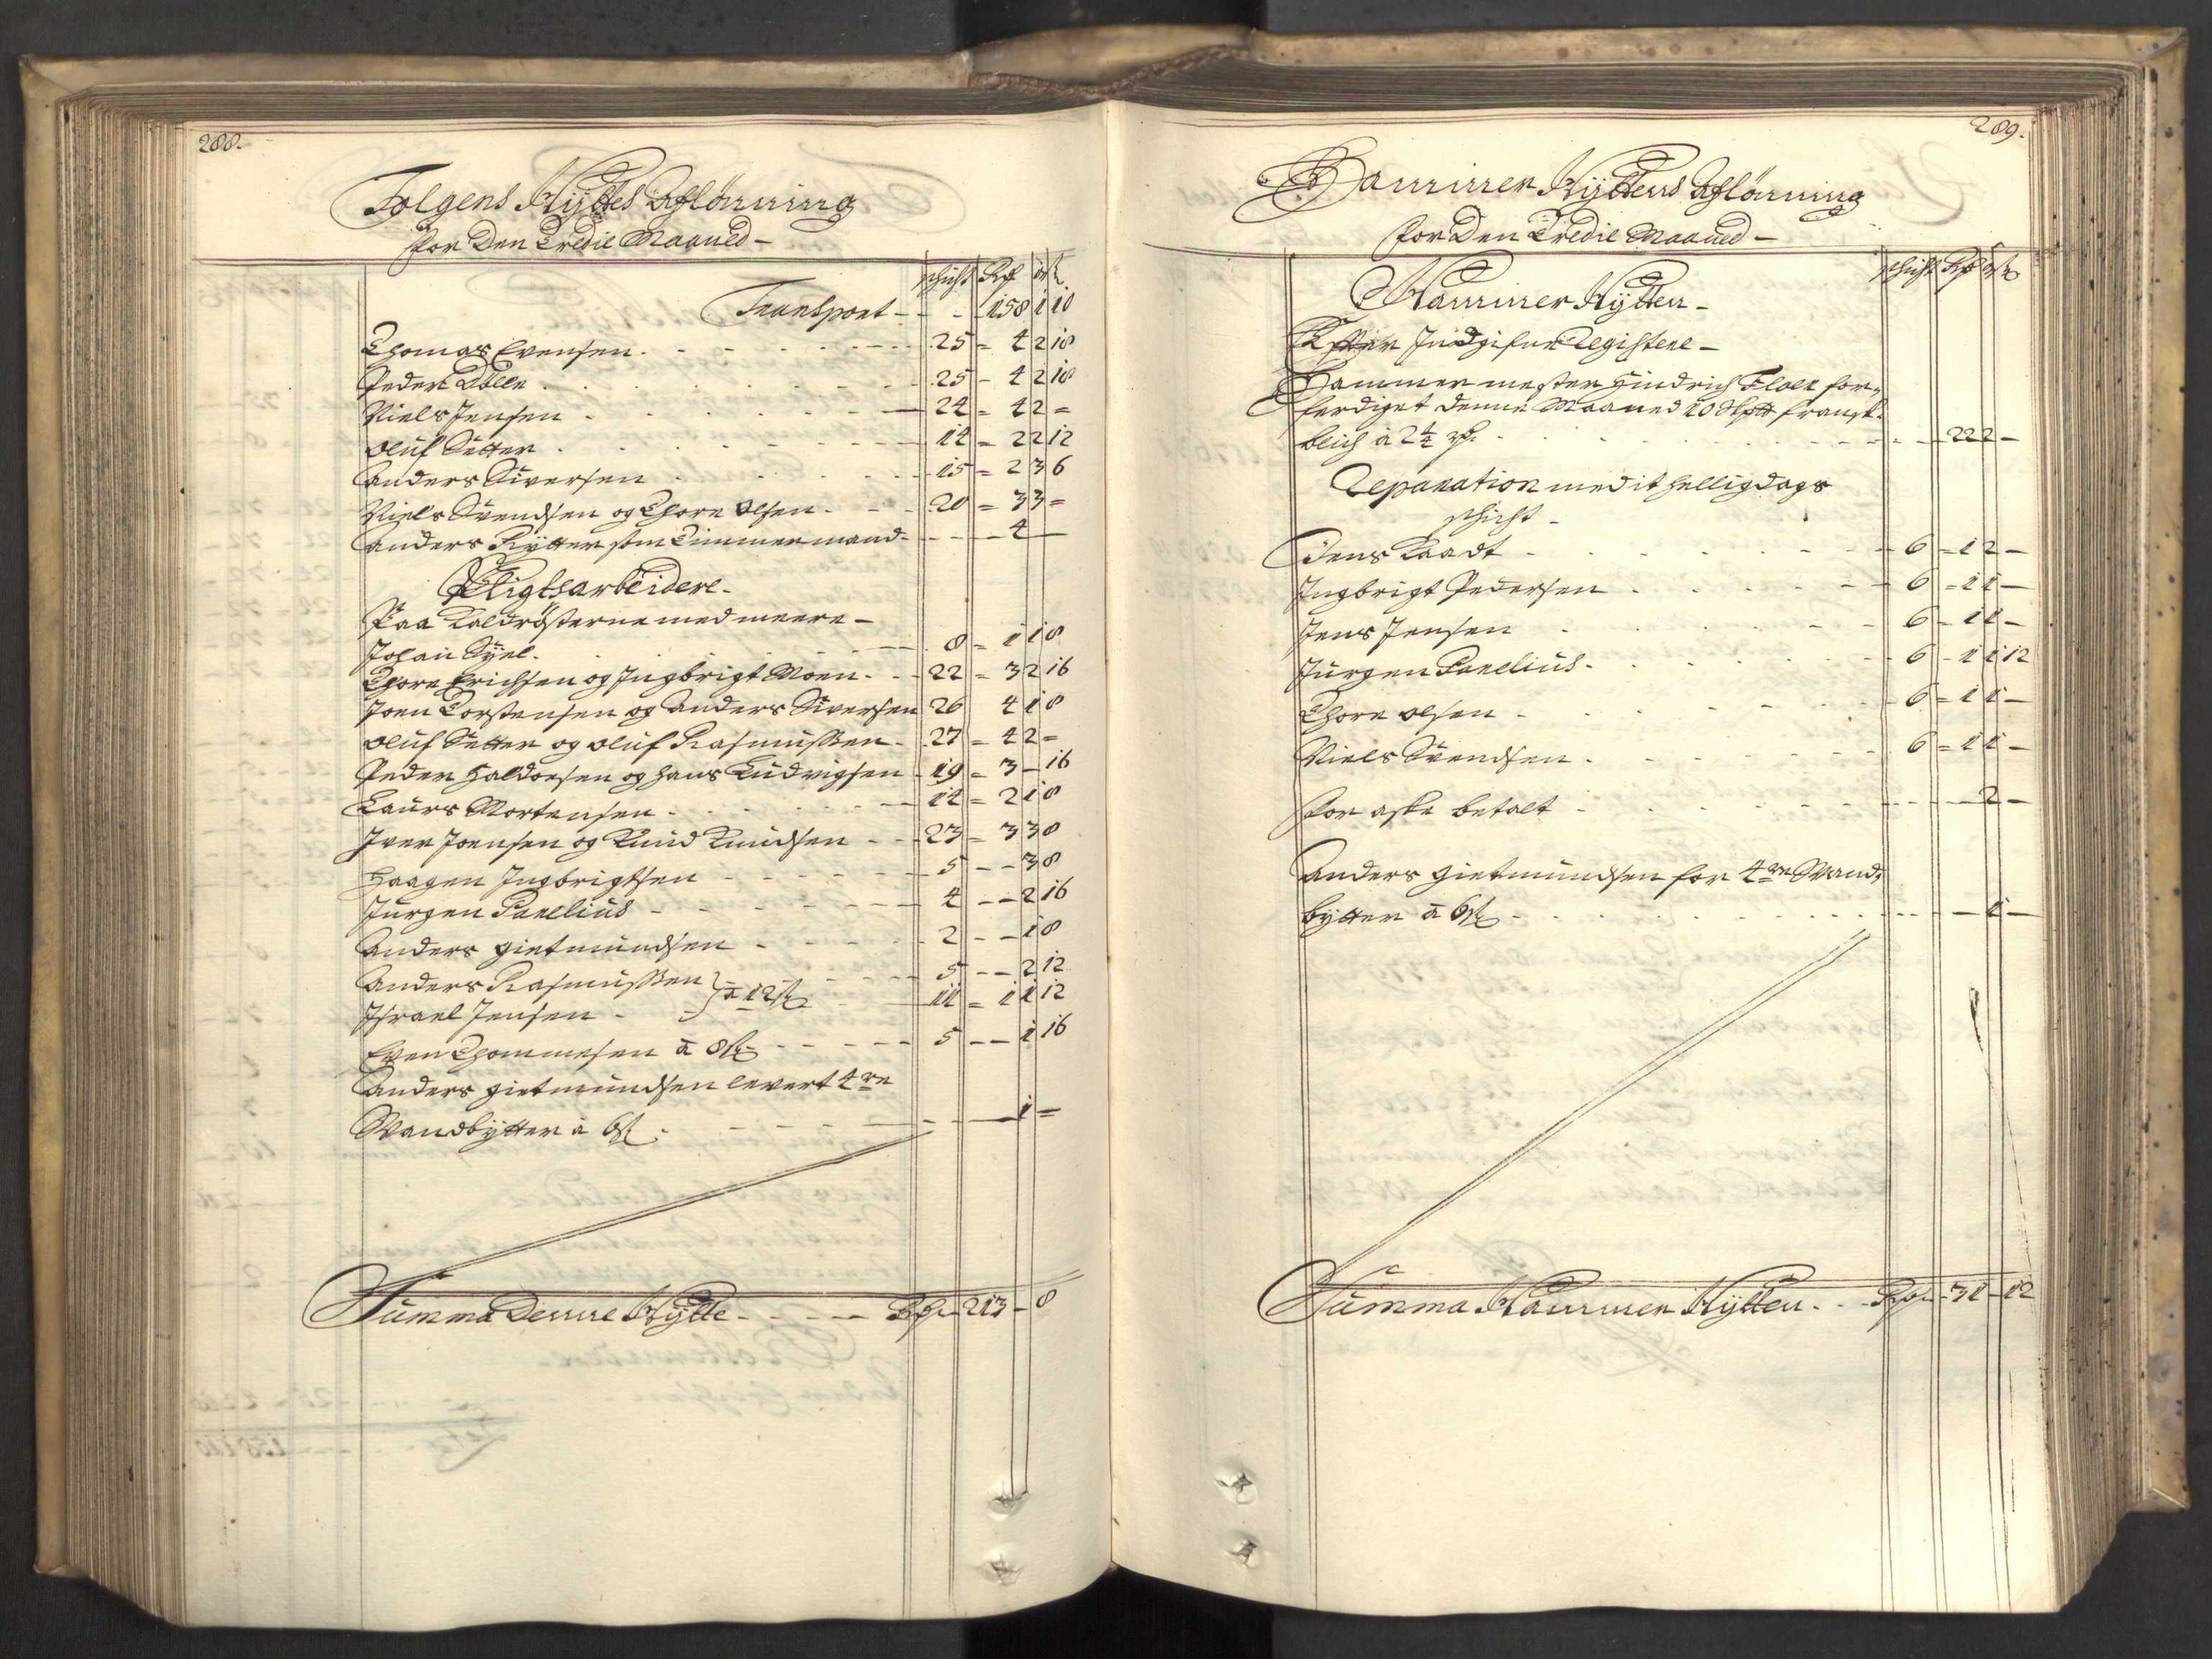 288.
Folgens Hÿttes Afslønning
for Den Tredie Maaned –
schicht Rdr ort ß
Transport – – – 158 1 10
Thomas Evensen . – – – 25 = 4 2 18
Peder Dolle . – – – 25 – 4 2 18
Niels Jensen . – – – 24 = 4 2 =
Oluf Setter . – – – 14 = 2 2 12
Anders Siversen . – – – 15 = 2 3 6
Niels Svendsen og Thore Olsen . – – 20 = 3 3 =
Anders Rÿtter som Timmermand – – – – 4 –
Pligtsarbeidere –
Paa Kaldrösterne med meere –
Johan Sÿel . – – – 8 = 1 1 8
Thore Erichsen og Ingbrigt Moen . – 22 = 3 2 16
Joen Torstensen og Anders Siversen 26 4 1 8
Oluf Setter og Oluf Rasmussen – 27 = 4 2 =
Peder Haldorsen og Hans Ludvigsen – 19 = 3 – 16
Laurs Mortensen – – – 14 = 2 1 8
Iver Joensen og Knud Knudsen – – 23 = 3 3 8
Haagen Ingbrigtsen – – – 5 – – 3 8
Jürgen Panelius – – – 4 – – 2 16
Anders Gietmundsen – – – 2 – – 1 8
Anders Rasmussen } – – – 5 – – 2 12
Israel Jensen – } à 12 ß – – 11 = 1 1 12
Even Thommesen à 8 ß – – – 5 – – 1 16
Anders Gietmundsen levert 4re
Vandbÿtter à 6 ß . – – – 1 =
Summa Denne Hÿtte – – – – Rdr – 213 – 8
289.
Hammer Hÿttens Afslønning
for Den Tredie Maaned –
schicht Rdr ort ß
Hammer Hÿtten –
Efter Indgifne Registere –
Hammermester Hindrich Floer for-
ferdiget denne Maaned 10 Skpd fransk
blich à 2 1/4 Rd . – – – 22 2 –
Reparation med it helligdags
schicht –
Jens Kaadt – – – 6 = 1 2 –
Ingbrigt Pedersen . – – – 6 = 1 1 –
Jens Jensen – – – 6 – 1 1 –
Jürgen Panelius – – – 6 – 1 1 12
Thore Olsen – – – 6 = 1 1 –
Niels Svendsen . – – – 6 = 1 1 –
For aske betalt – – – 2 –
Anders Gietmundsen for 4re Vand-
bÿtter à 6 ß – – – 1 –
Summa Hammer Hÿtten . – – Rdr – 31 – 12